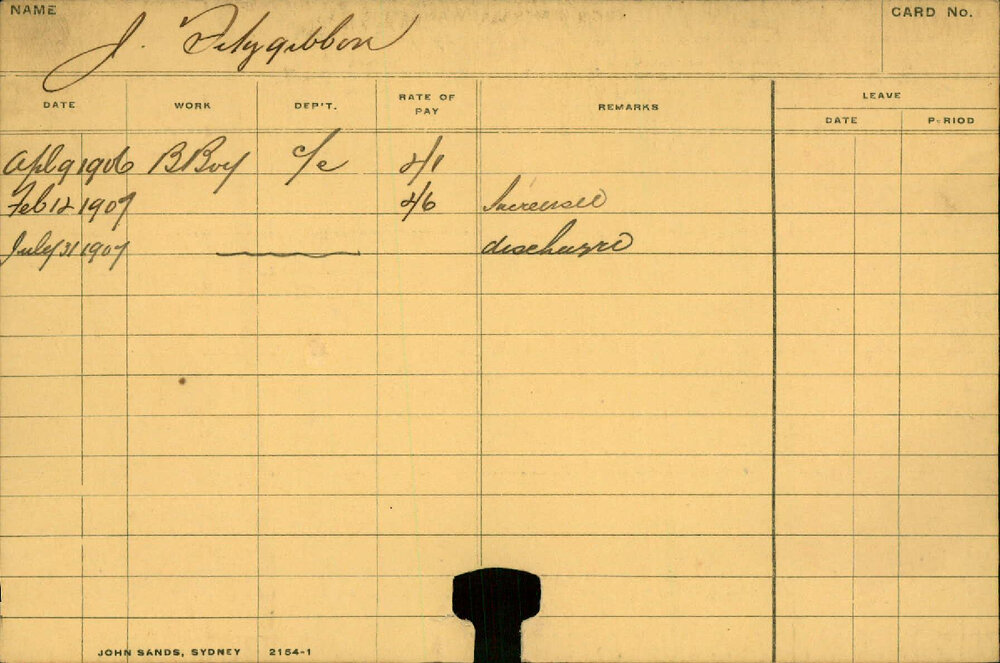 NAME J. Fitzgibbon CARD No.
DATE WORK DEP'T. RATE OF PAY REMARKS LEAVE
DATE PERIOD
Apl 9 1906 B Boy c/e 2/1
Feb 12 1907 2/6 Increased
July 31 1907 discharge
JOHN SANDS, SYDNEY 2154-1